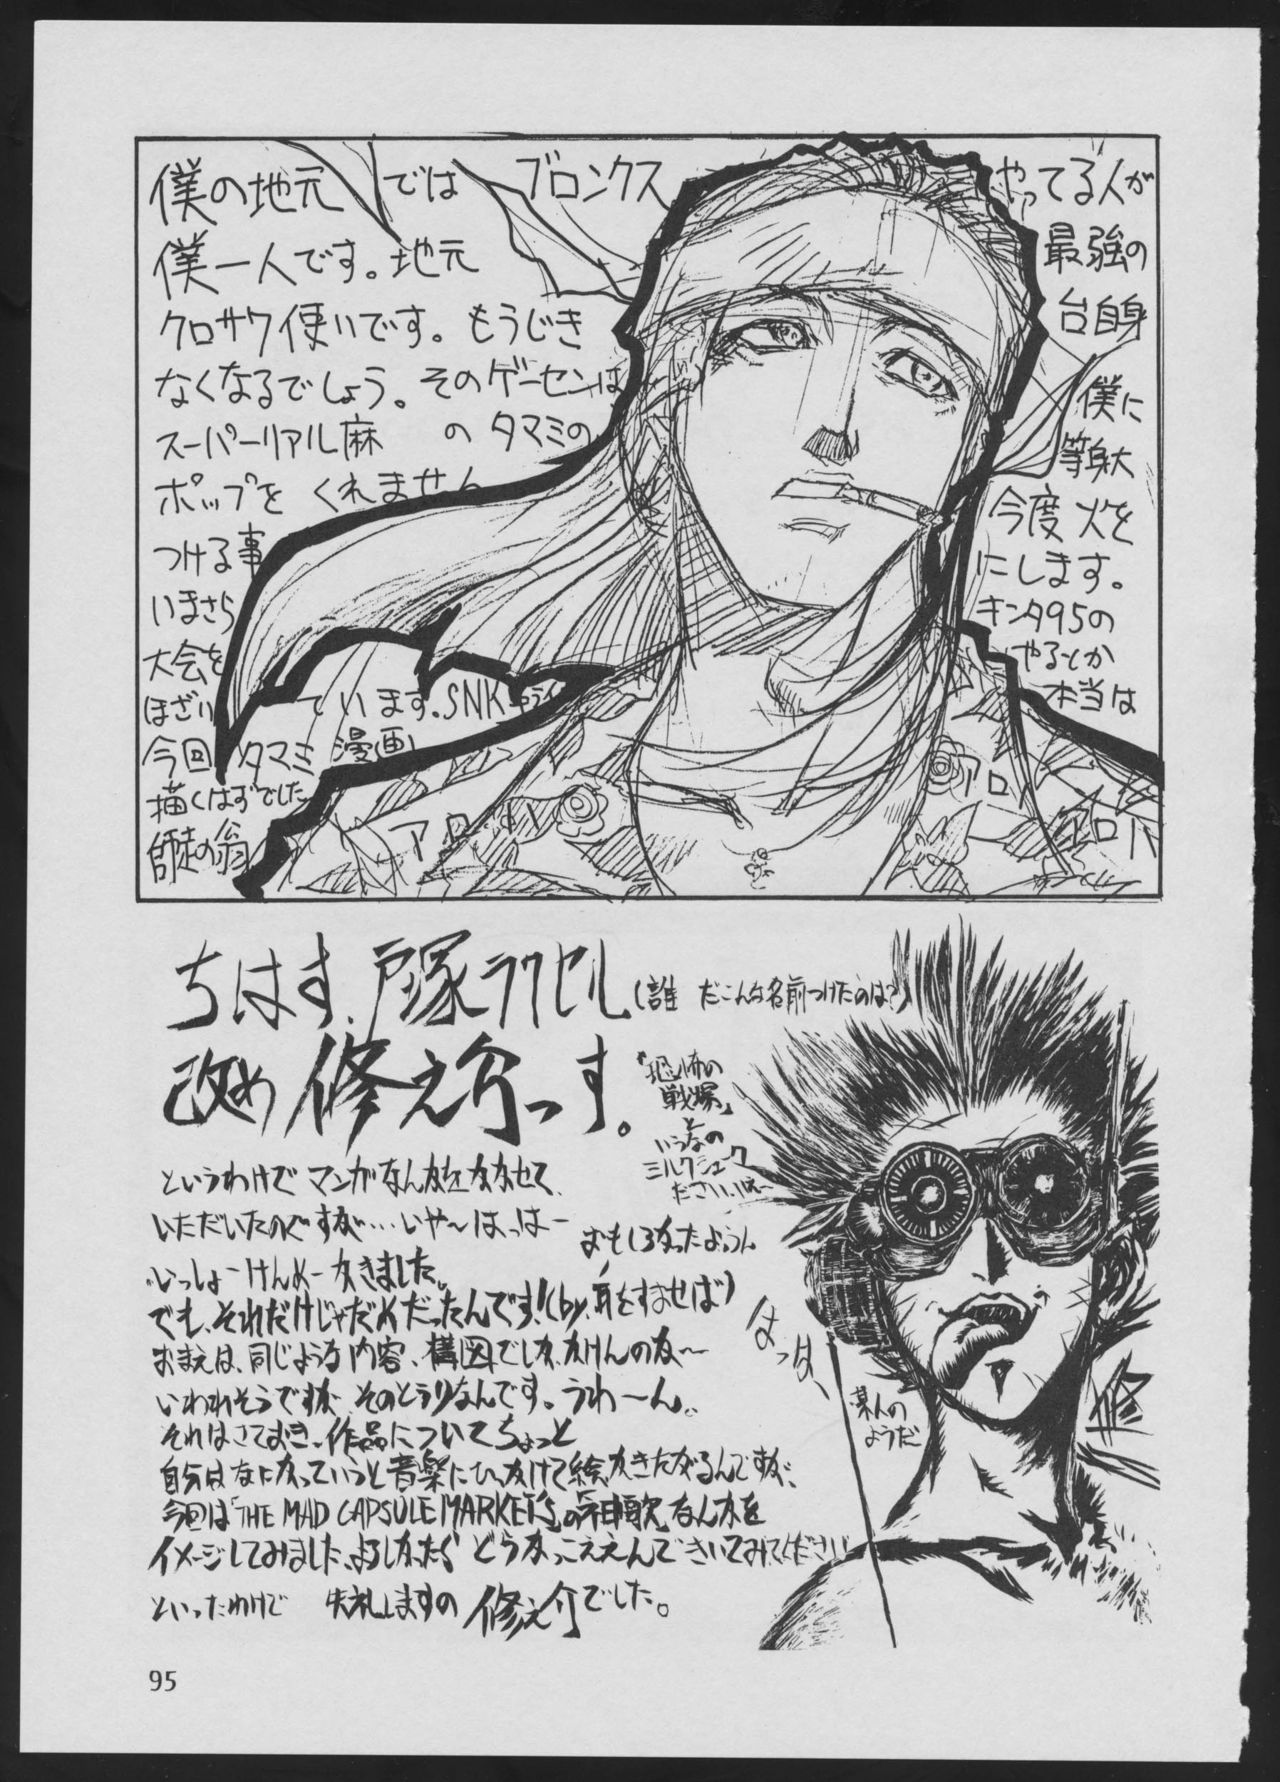 僕の地元では ブロンクス やってる人が
僕一人です。地元 最強の
クロサワ使いです。もうじき 台自身
なくなるでしょう。そのゲーセンは 僕に
スーパーリアル麻 のタマミの 等身大
ポップを くれません 今度火を
つける事 にします。
いまさら キンタ95の
大会を やるとか
ほざい ています。SNK 本当は
今回 タマミ漫画
描くはずでした
師走の翁
アロハ
アロ
アロハ
ちはす、戸塚ラクセル(誰だこんな名前つけたのは?)
改め 修之介っす。
『恐怖の
戦場』と
いうなの
ミルクシェーク
ださい、
というわけで マンガなんかをかかせて、
いただいたのですが…いや〜はっは−
いっしょーけんめーかきました。
おもしろかったよぅ
でも、それだけじゃだめだったんです!(by.耳をすませば)
おまえは、同じような内容、構図でしか、かけんのか〜
いわれそうですが そのとうりなんです。うわ〜ん。
それはさておき、作品についてちょっと
自分はなにかっていうと音楽にひっかけて絵、かきたがるんですが、
今回は「THE MAD CAPSULE MARKET'S」の「神歌」なんかを
イメージしてみました、よろしかったら どうかきいてみてください
といったわけで 失礼しますの 修之介でした。
はっは、
某人の
ようだ
修
95